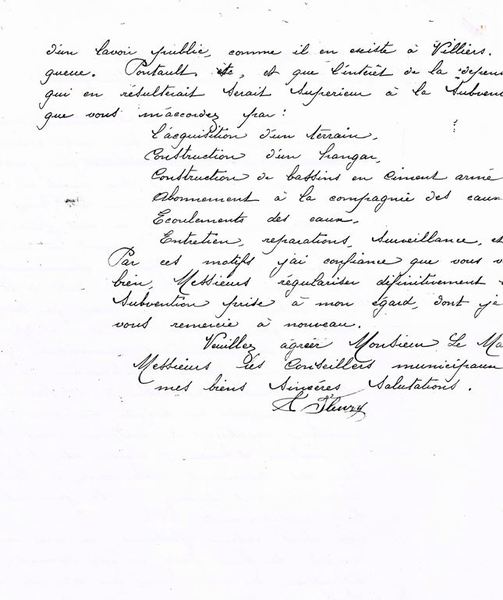 d'un lavoir public, comme il en existe à Villiers.
gueux. Pontault etc, et que l'intérêt de la depens
qui en résulterait serait superieur à la Subven
que vous m'accordez par:
L'acquisition d'un terrain,
Construction d'un hangar,
Construction de bassins en ciment armé
Abonnement à la compagnie des eaux
Ecoulements des eaux.
Entretien, reparations, surveillance, et
Par ces motifs j'ai confiance que vous v
bien, Messieurs régulariser définitivement
Subvention prise à mon égard, dont je
vous remercie à nouveau.
Veuillez agréer Monsieur Le Ma
Messieurs les Conseillers municipaux
mes biens sincères salutations.